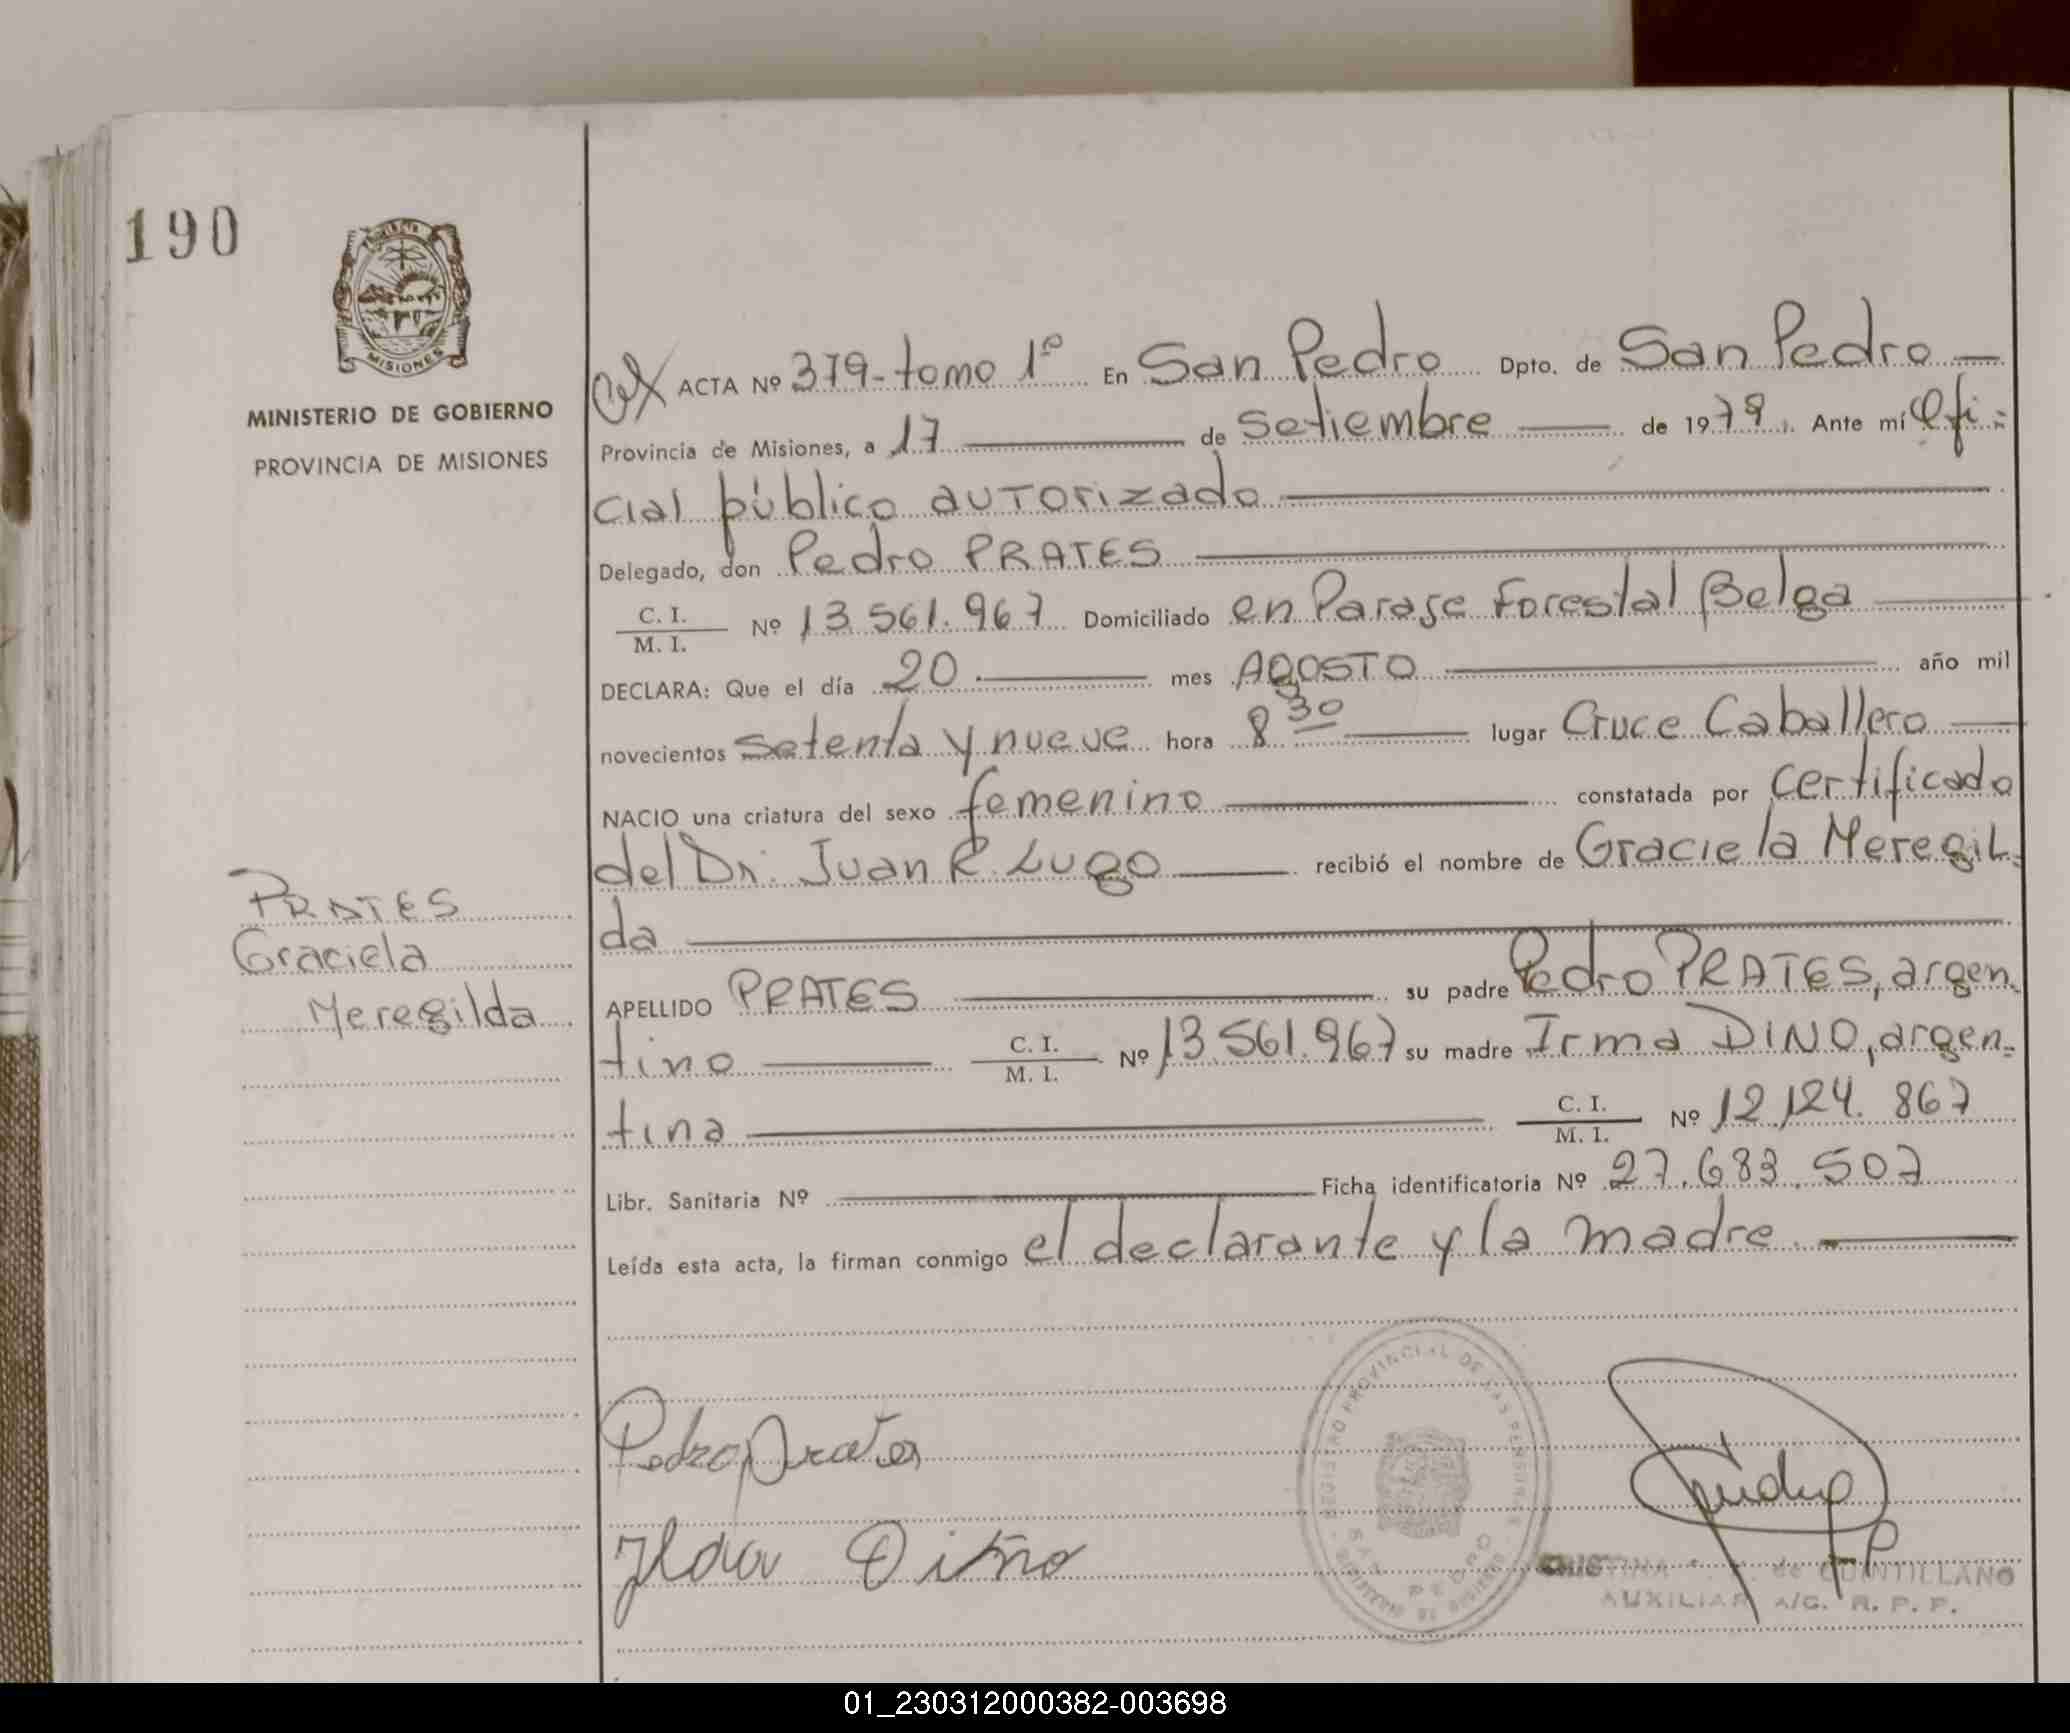 190
MISIONES
MINISTERIO DE GOBIERNO
PROVINCIA DE MISIONES
ACTA Nº 379-tomo 1º En San Pedro Dpto. de San Pedro
Provincia de Misiones, a 17 de setiembre de 1979. Ante mí Ofi-
cial público autorizado
Delegado, don Pedro PRATES
C. I.
M. I. Nº 13.561.967 Domiciliado en Paraje Forestal Belga
DECLARA: Que el día 20 mes AGOSTO año mil
novecientos setenta y nueve hora 8 30 lugar Cruce Caballero
NACIO una criatura del sexo femenino constatada por certificado
del Dr. Juan R. Lugo recibió el nombre de Graciela Meregil-
da
PRATES
Graciela
Meregilda
APELLIDO PRATES su padre Pedro PRATES, argen-
tino C. I. M. I. Nº 13.561.967 su madre Irma DINO, argen-
tina C. I. M. I. Nº 12.124.867
Libr. Sanitaria Nº Ficha identificatoria Nº 27.683.507
Leída esta acta, la firman conmigo el declarante y la madre.
Pedro Prates
REGISTRO PROVINCIAL DE LAS PERSONAS
SAN PEDRO
CRISTINA de QUINTILLANO
AUXILIAR A/C. R. P. P.
01_230312000382-003698